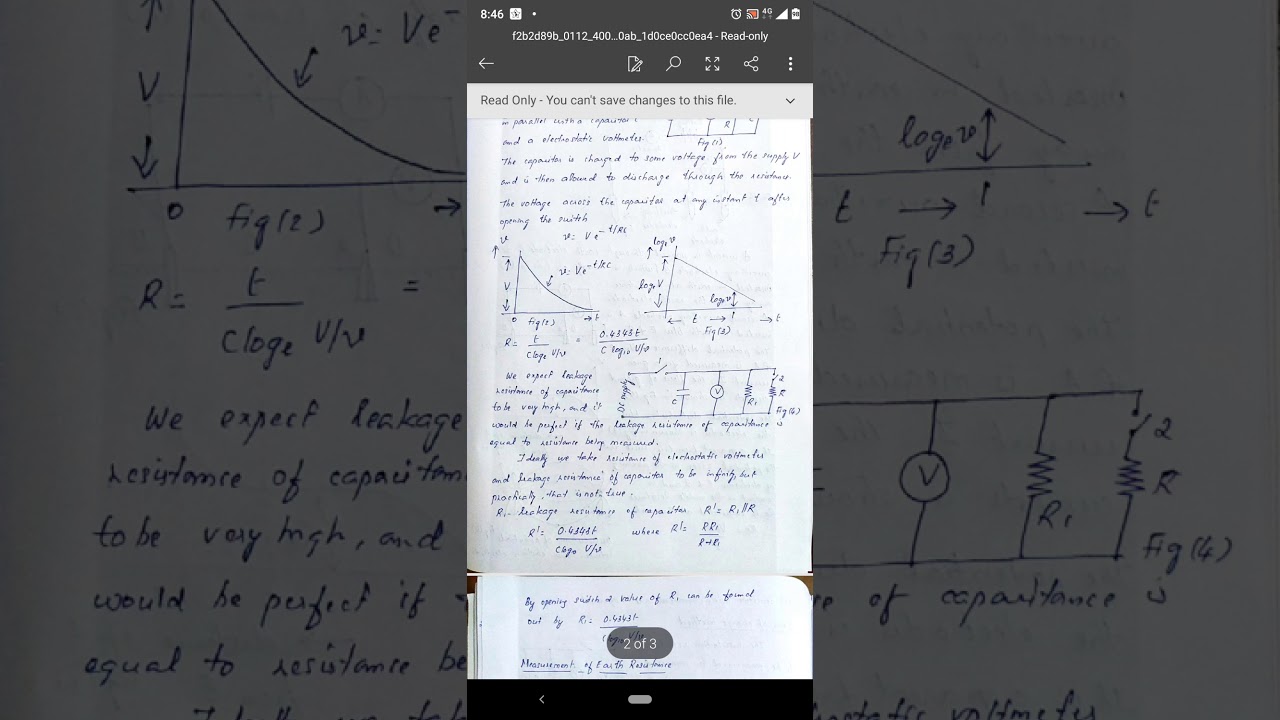 8:46
4G
98
f2b2d89b_0112_400...0ab_1d0ce0cc0ea4 - Read-only
Read Only - You can't save changes to this file.
in parallel with a capacitor C
and a electrostatic voltmeter.
R
Fig(1)
The capacitor is charged to some voltage from the supply V
and is then allowed to discharge through the resistance.
The voltage across the capacitor at any instant t after
opening the switch
v = V e^-t/RC
v
V
v = Ve^-t/RC
0
Fig(2)
t
loge v
loge V
loge v
t
t
Fig(3)
R = t / C loge V/v = 0.4343t / C log10 V/v
We expect leakage
resistance of capacitance
to be very high, and it
would be perfect if the leakage resistance of capacitance is
equal to resistance being measured.
1
DC supply
C
V
R1
2
R
Fig(4)
Ideally we take resistance of electrostatic voltmeter
and leakage resistance of capacitor to be infinity, but
practically, that is not true.
R1 - leakage resistance of capacitor R' = R1 // R
R' = 0.4343t / C log10 V/v where R' = RR1 / R+R1
By opening switch 2 value of R1 can be found
out by R1 = 0.4343t
2 of 3
Measurement of Earth Resistance
v = Ve^-
V
0
Fig(2)
R = t / C loge V/v =
We expect leakage
resistance of capacitan
to be very high, and
would be perfect if
equal to resistance be
loge v
t
t
Fig(3)
V
R1
2
R
Fig(4)
e of capacitance is
static voltmeter